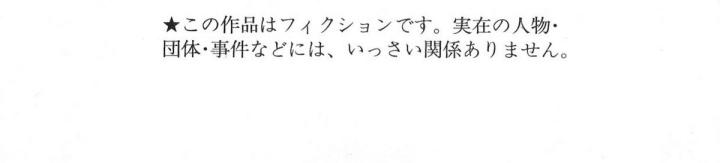 ★この作品はフィクションです。実在の人物・
団体・事件などには、いっさい関係ありません。